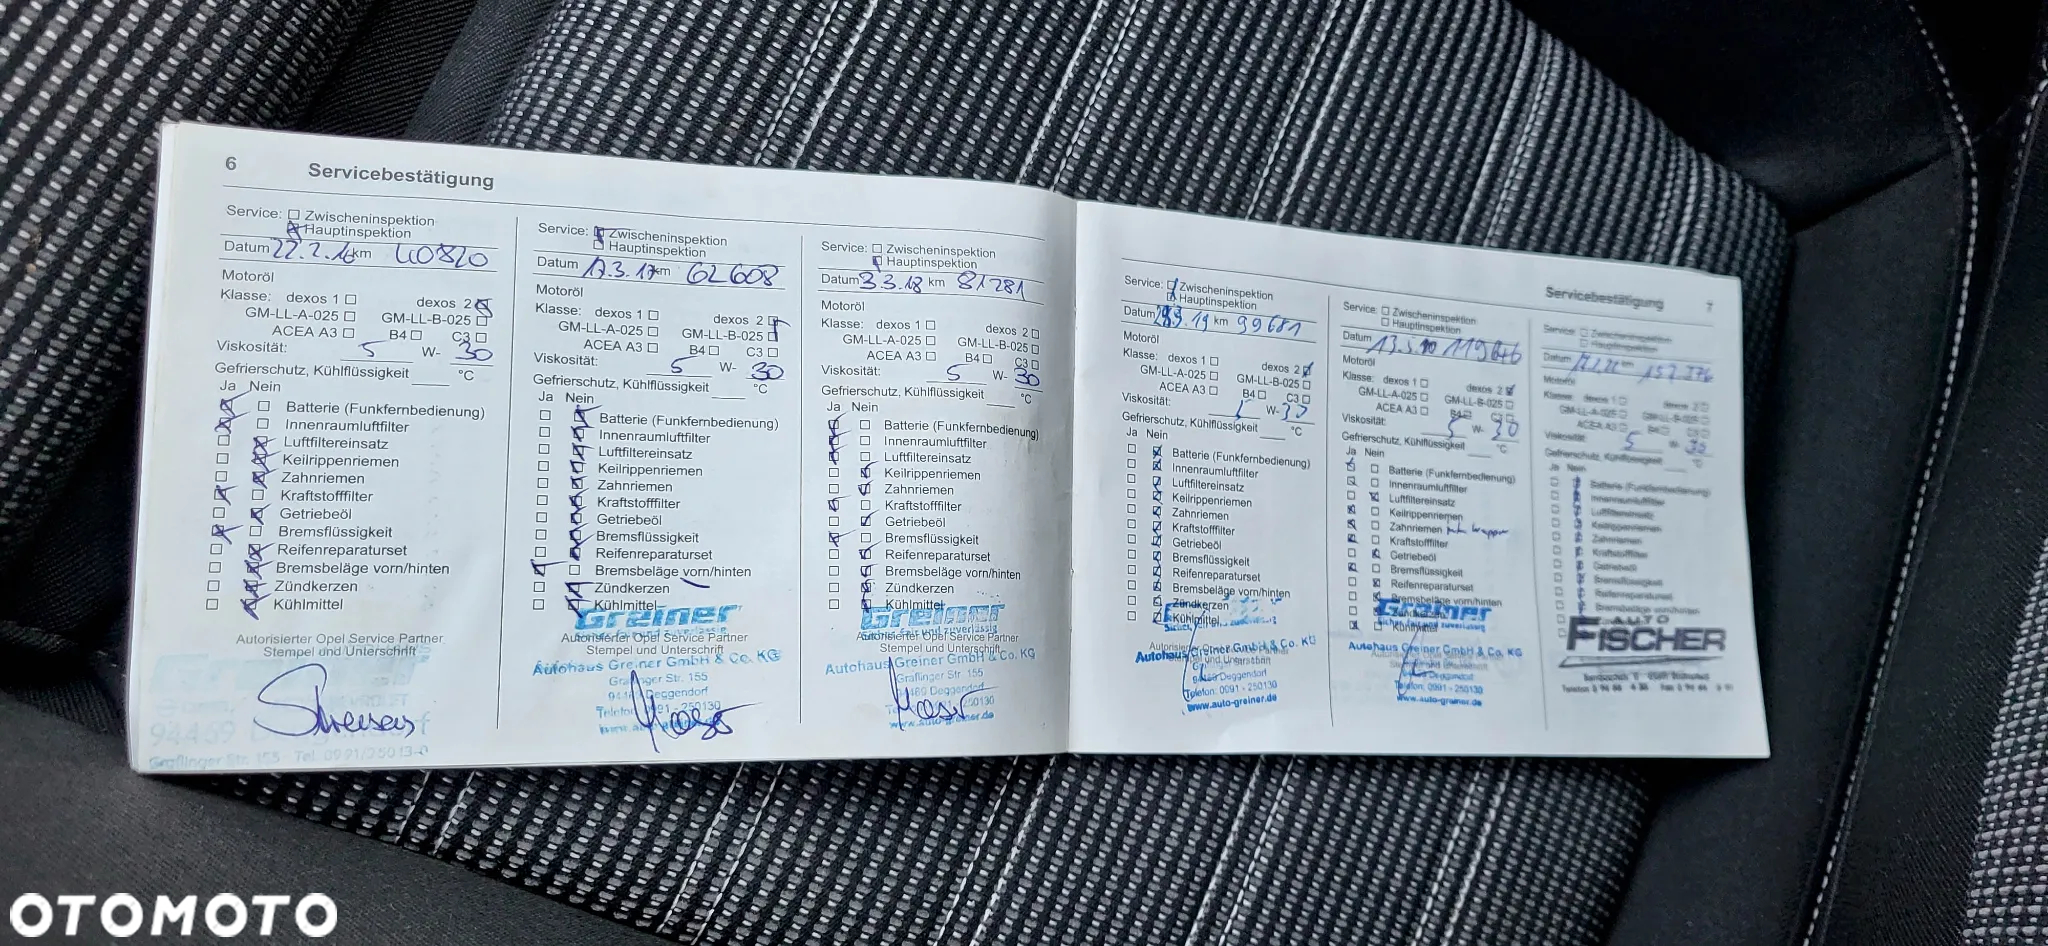 6 Servicebestätigung
Service: Zwischeninspektion
Hauptinspektion
Datum 22.2.16 km 40820
Motoröl
Klasse: dexos 1 dexos 2
GM-LL-A-025 GM-LL-B-025
ACEA A3 B4 C3
Viskosität: 5 W- 30
Gefrierschutz, Kühlflüssigkeit °C
Ja Nein
Batterie (Funkfernbedienung)
Innenraumluftfilter
Luftfiltereinsatz
Keilrippenriemen
Zahnriemen
Kraftstofffilter
Getriebeöl
Bremsflüssigkeit
Reifenreparaturset
Bremsbeläge vorn/hinten
Zündkerzen
Kühlmittel
Autorisierter Opel Service Partner
Stempel und Unterschrift
94469
Graflinger Str. 155 - Tel. 0991/25013-0
Service: Zwischeninspektion
Hauptinspektion
Datum 17.3.17 km 62608
Motoröl
Klasse: dexos 1 dexos 2
GM-LL-A-025 GM-LL-B-025
ACEA A3 B4 C3
Viskosität: 5 W- 30
Gefrierschutz, Kühlflüssigkeit °C
Ja Nein
Batterie (Funkfernbedienung)
Innenraumluftfilter
Luftfiltereinsatz
Keilrippenriemen
Zahnriemen
Kraftstofffilter
Getriebeöl
Bremsflüssigkeit
Reifenreparaturset
Bremsbeläge vorn/hinten
Zündkerzen
Kühlmittel
Greiner
Autorisierter Opel Service Partner
Stempel und Unterschrift
Autohaus Greiner GmbH & Co. KG
Graflinger Str. 155
Deggendorf
Telefon: 0991 - 250130
Service: Zwischeninspektion
Hauptinspektion
Datum 3.3.18 km 81281
Motoröl
Klasse: dexos 1 dexos 2
GM-LL-A-025 GM-LL-B-025
ACEA A3 B4 C3
Viskosität: 5 W- 30
Gefrierschutz, Kühlflüssigkeit °C
Ja Nein
Batterie (Funkfernbedienung)
Innenraumluftfilter
Luftfiltereinsatz
Keilrippenriemen
Zahnriemen
Kraftstofffilter
Getriebeöl
Bremsflüssigkeit
Reifenreparaturset
Bremsbeläge vorn/hinten
Zündkerzen
Kühlmittel
Greiner
fair und zuverlässig
Autorisierter Opel Service Partner
Stempel und Unterschrift
Autohaus Greiner GmbH & Co. KG
Graflinger Str. 155
94469 Deggendorf
250130
www.auto-greiner.de
Servicebestätigung 7
Service: Zwischeninspektion
Hauptinspektion
Datum km 99681
Motoröl
Klasse: dexos 1 dexos 2
GM-LL-A-025 GM-LL-B-025
ACEA A3 B4 C3
Viskosität: 5 W- 30
Gefrierschutz, Kühlflüssigkeit °C
Ja Nein
Batterie (Funkfernbedienung)
Innenraumluftfilter
Luftfiltereinsatz
Keilrippenriemen
Zahnriemen
Kraftstofffilter
Getriebeöl
Bremsflüssigkeit
Reifenreparaturset
Bremsbeläge vorn/hinten
Zündkerzen
Kühlmittel
Autohaus Greiner GmbH & Co. KG
94469 Deggendorf
Telefon: 0991 - 250130
www.auto-greiner.de
Service: Zwischeninspektion
Hauptinspektion
Datum
Motoröl
Klasse: dexos 1 dexos 2
GM-LL-A-025 GM-LL-B-025
ACEA A3 B4 C3
Viskosität: 5 W- 30
Gefrierschutz, Kühlflüssigkeit °C
Ja Nein
Batterie (Funkfernbedienung)
Innenraumluftfilter
Luftfiltereinsatz
Keilrippenriemen
Zahnriemen
Kraftstofffilter
Getriebeöl
Bremsflüssigkeit
Reifenreparaturset
Bremsbeläge vorn/hinten
Kühlmittel
Greiner
Sicher, fair und zuverlässig
Autohaus Greiner GmbH & Co. KG
Deggendorf
Telefon: 0991 - 250130
www.auto-greiner.de
Service: Zwischeninspektion
Hauptinspektion
Datum
Motoröl
Klasse: dexos 1 dexos 2
GM-LL-A-025 GM-LL-B-025
ACEA A3 B4 C3
Viskosität: 5 W- 30
Gefrierschutz, Kühlflüssigkeit °C
Ja Nein
Batterie (Funkfernbedienung)
Innenraumluftfilter
Luftfiltereinsatz
Keilrippenriemen
Zahnriemen
Kraftstofffilter
Getriebeöl
Bremsflüssigkeit
Reifenreparaturset
Bremsbeläge vorn/hinten
AUTO
FISCHER
OTOMOTO